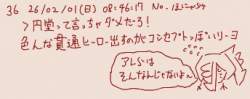 36 26/02/01(日)08:46:17 No.ほにゃらら
>円堂って言っちゃダメだろ!
色んな貫通ヒーロー出すのがコンセプトっぽいリーヨ
アレらは
そんなんじゃないよん